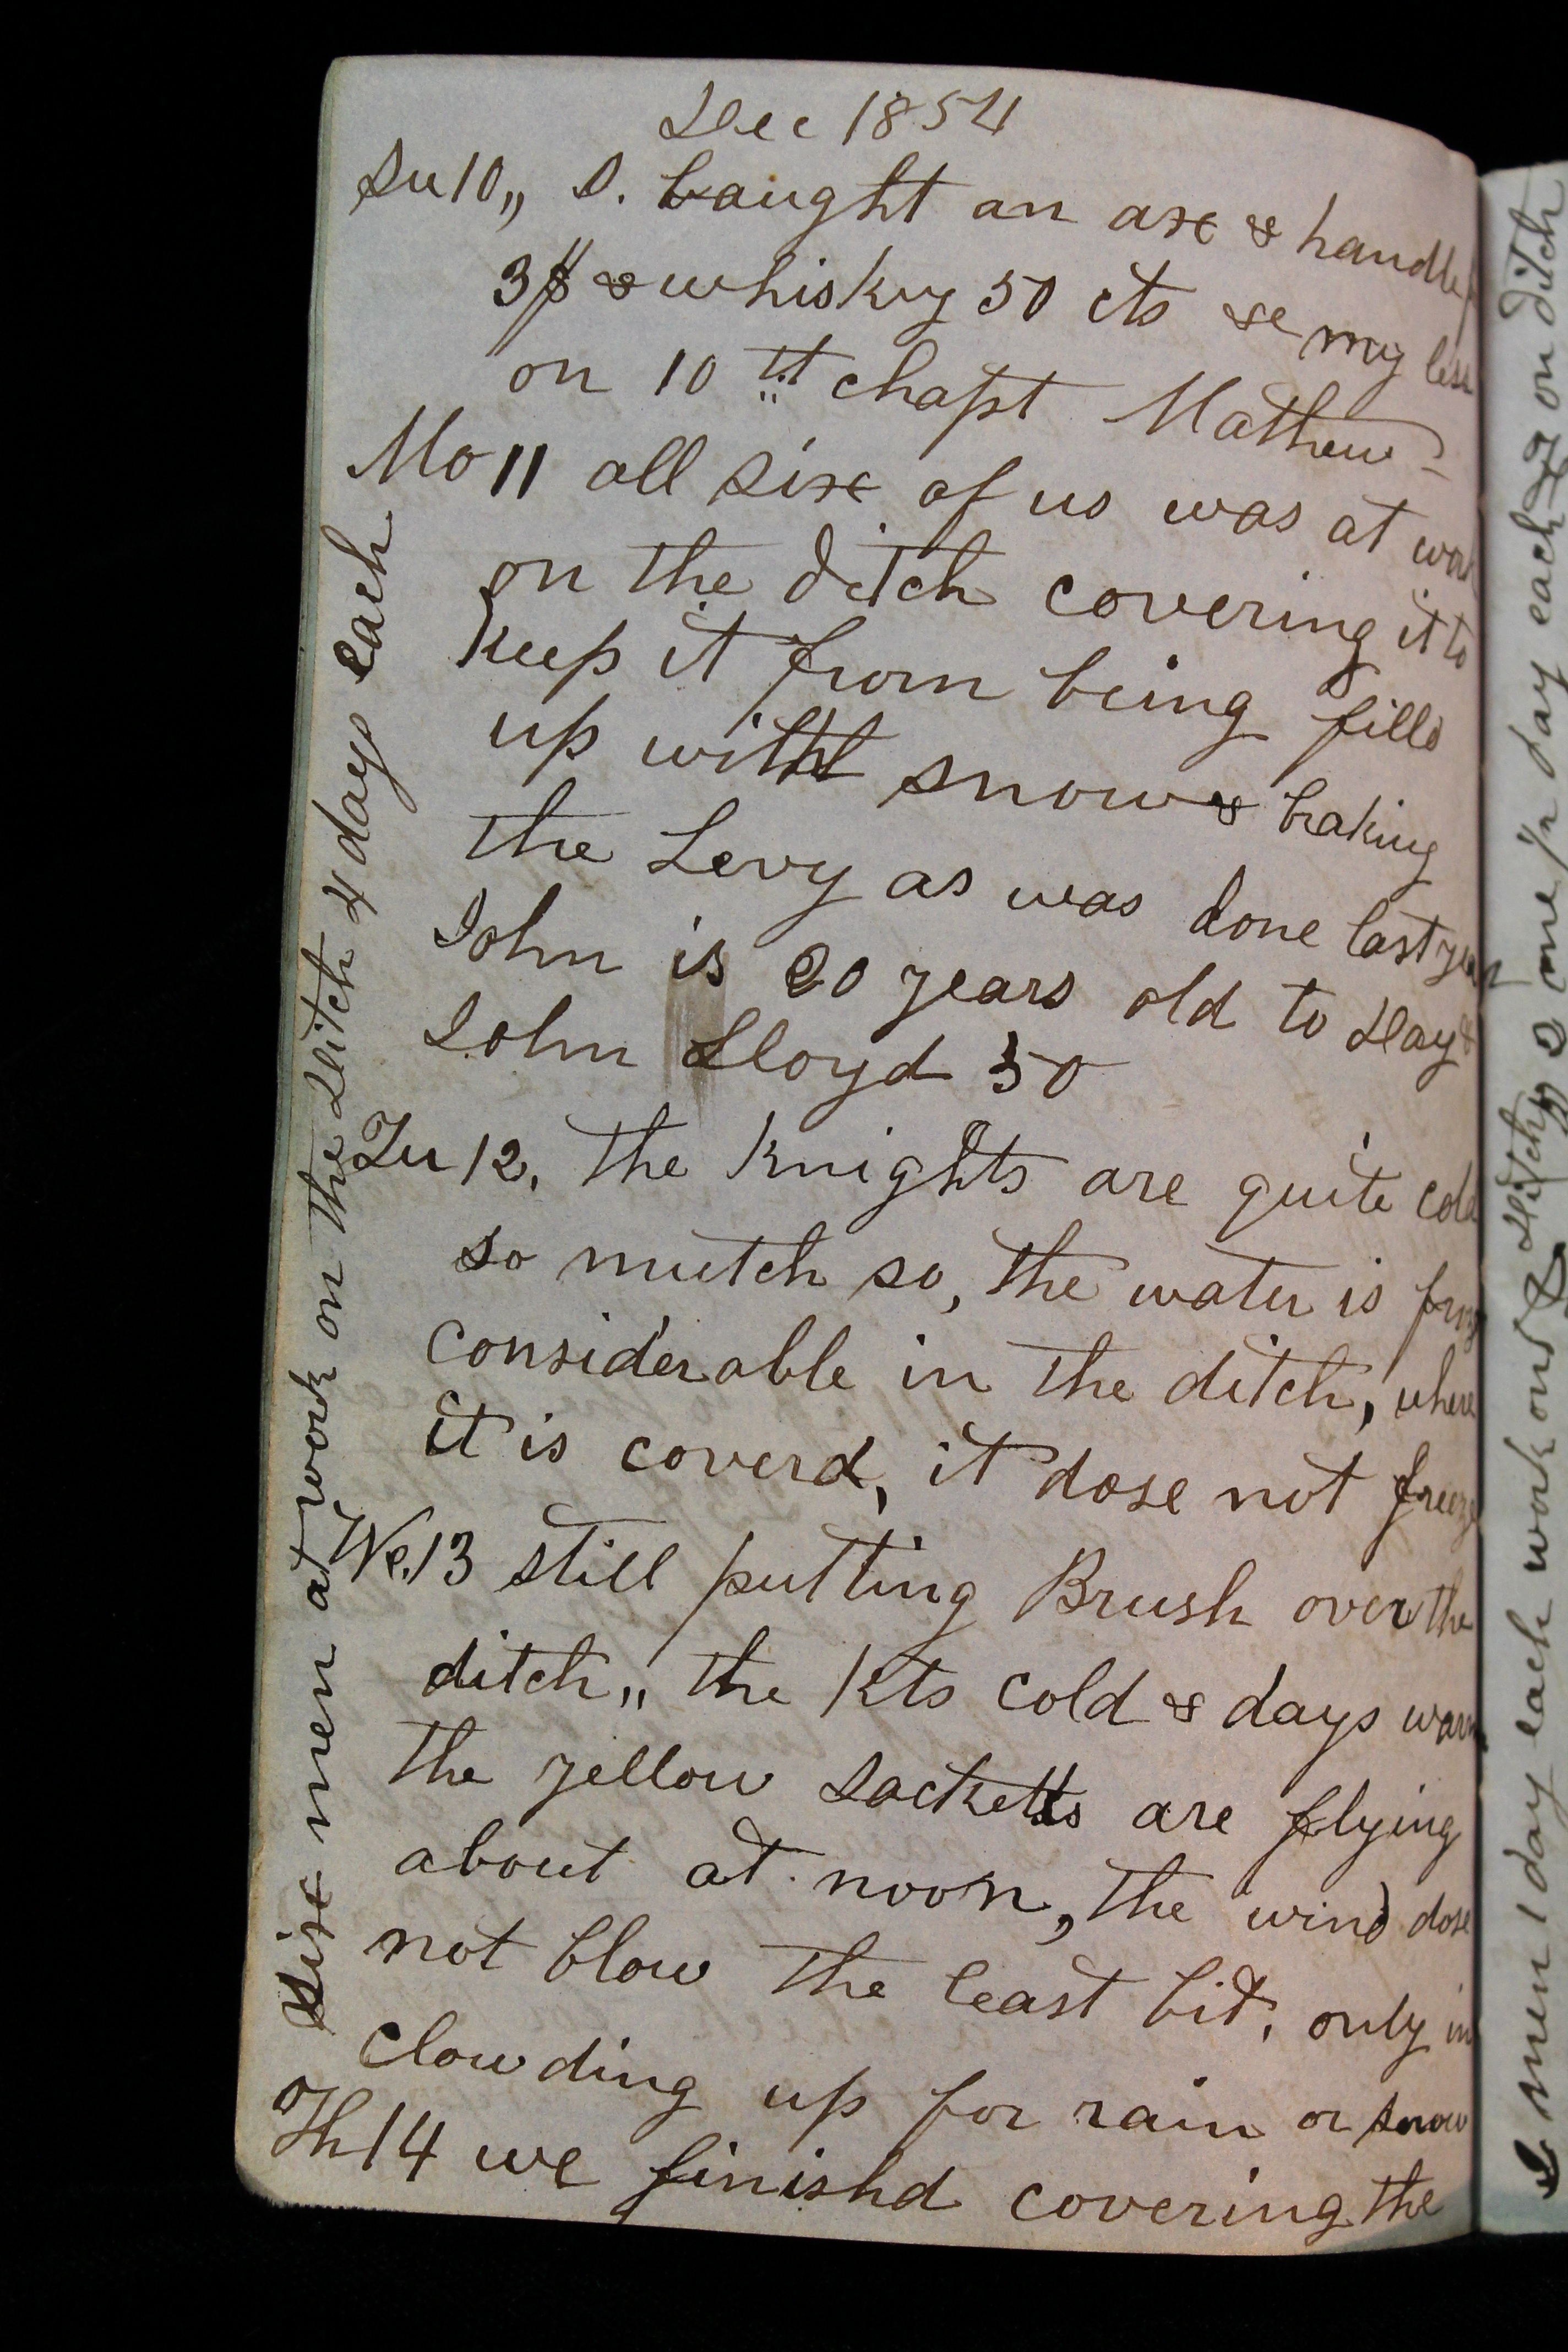 Dec 1854
Su 10,, S. baught an axe & handle
3$ & whiskey 50 cts se my less
on 10th chapt Mathew
Mo 11 all sixe of us was at work
on the ditch covering it to
keep it from being filld
up with snow & braking
the Levy as was done last year
John is 20 years old to day &
John Lloyd 50
Tu 12, the knights are quite cold
so mutch so, the water is froze
considerable in the ditch, where
it is coverd, it dose not freeze
We. 13 still putting Brush over the
ditch,, the Kts cold & days warm
the yellow Jacketts are flying
about at noon, the wind dose
not blow the least bit, only in
clowding up for rain or snow
Th 14 we finishd covering the
Sixe men at work on the Ditch 4 days each
men 1 day each work on Ditch, 2 one 1/2 day each on ditch